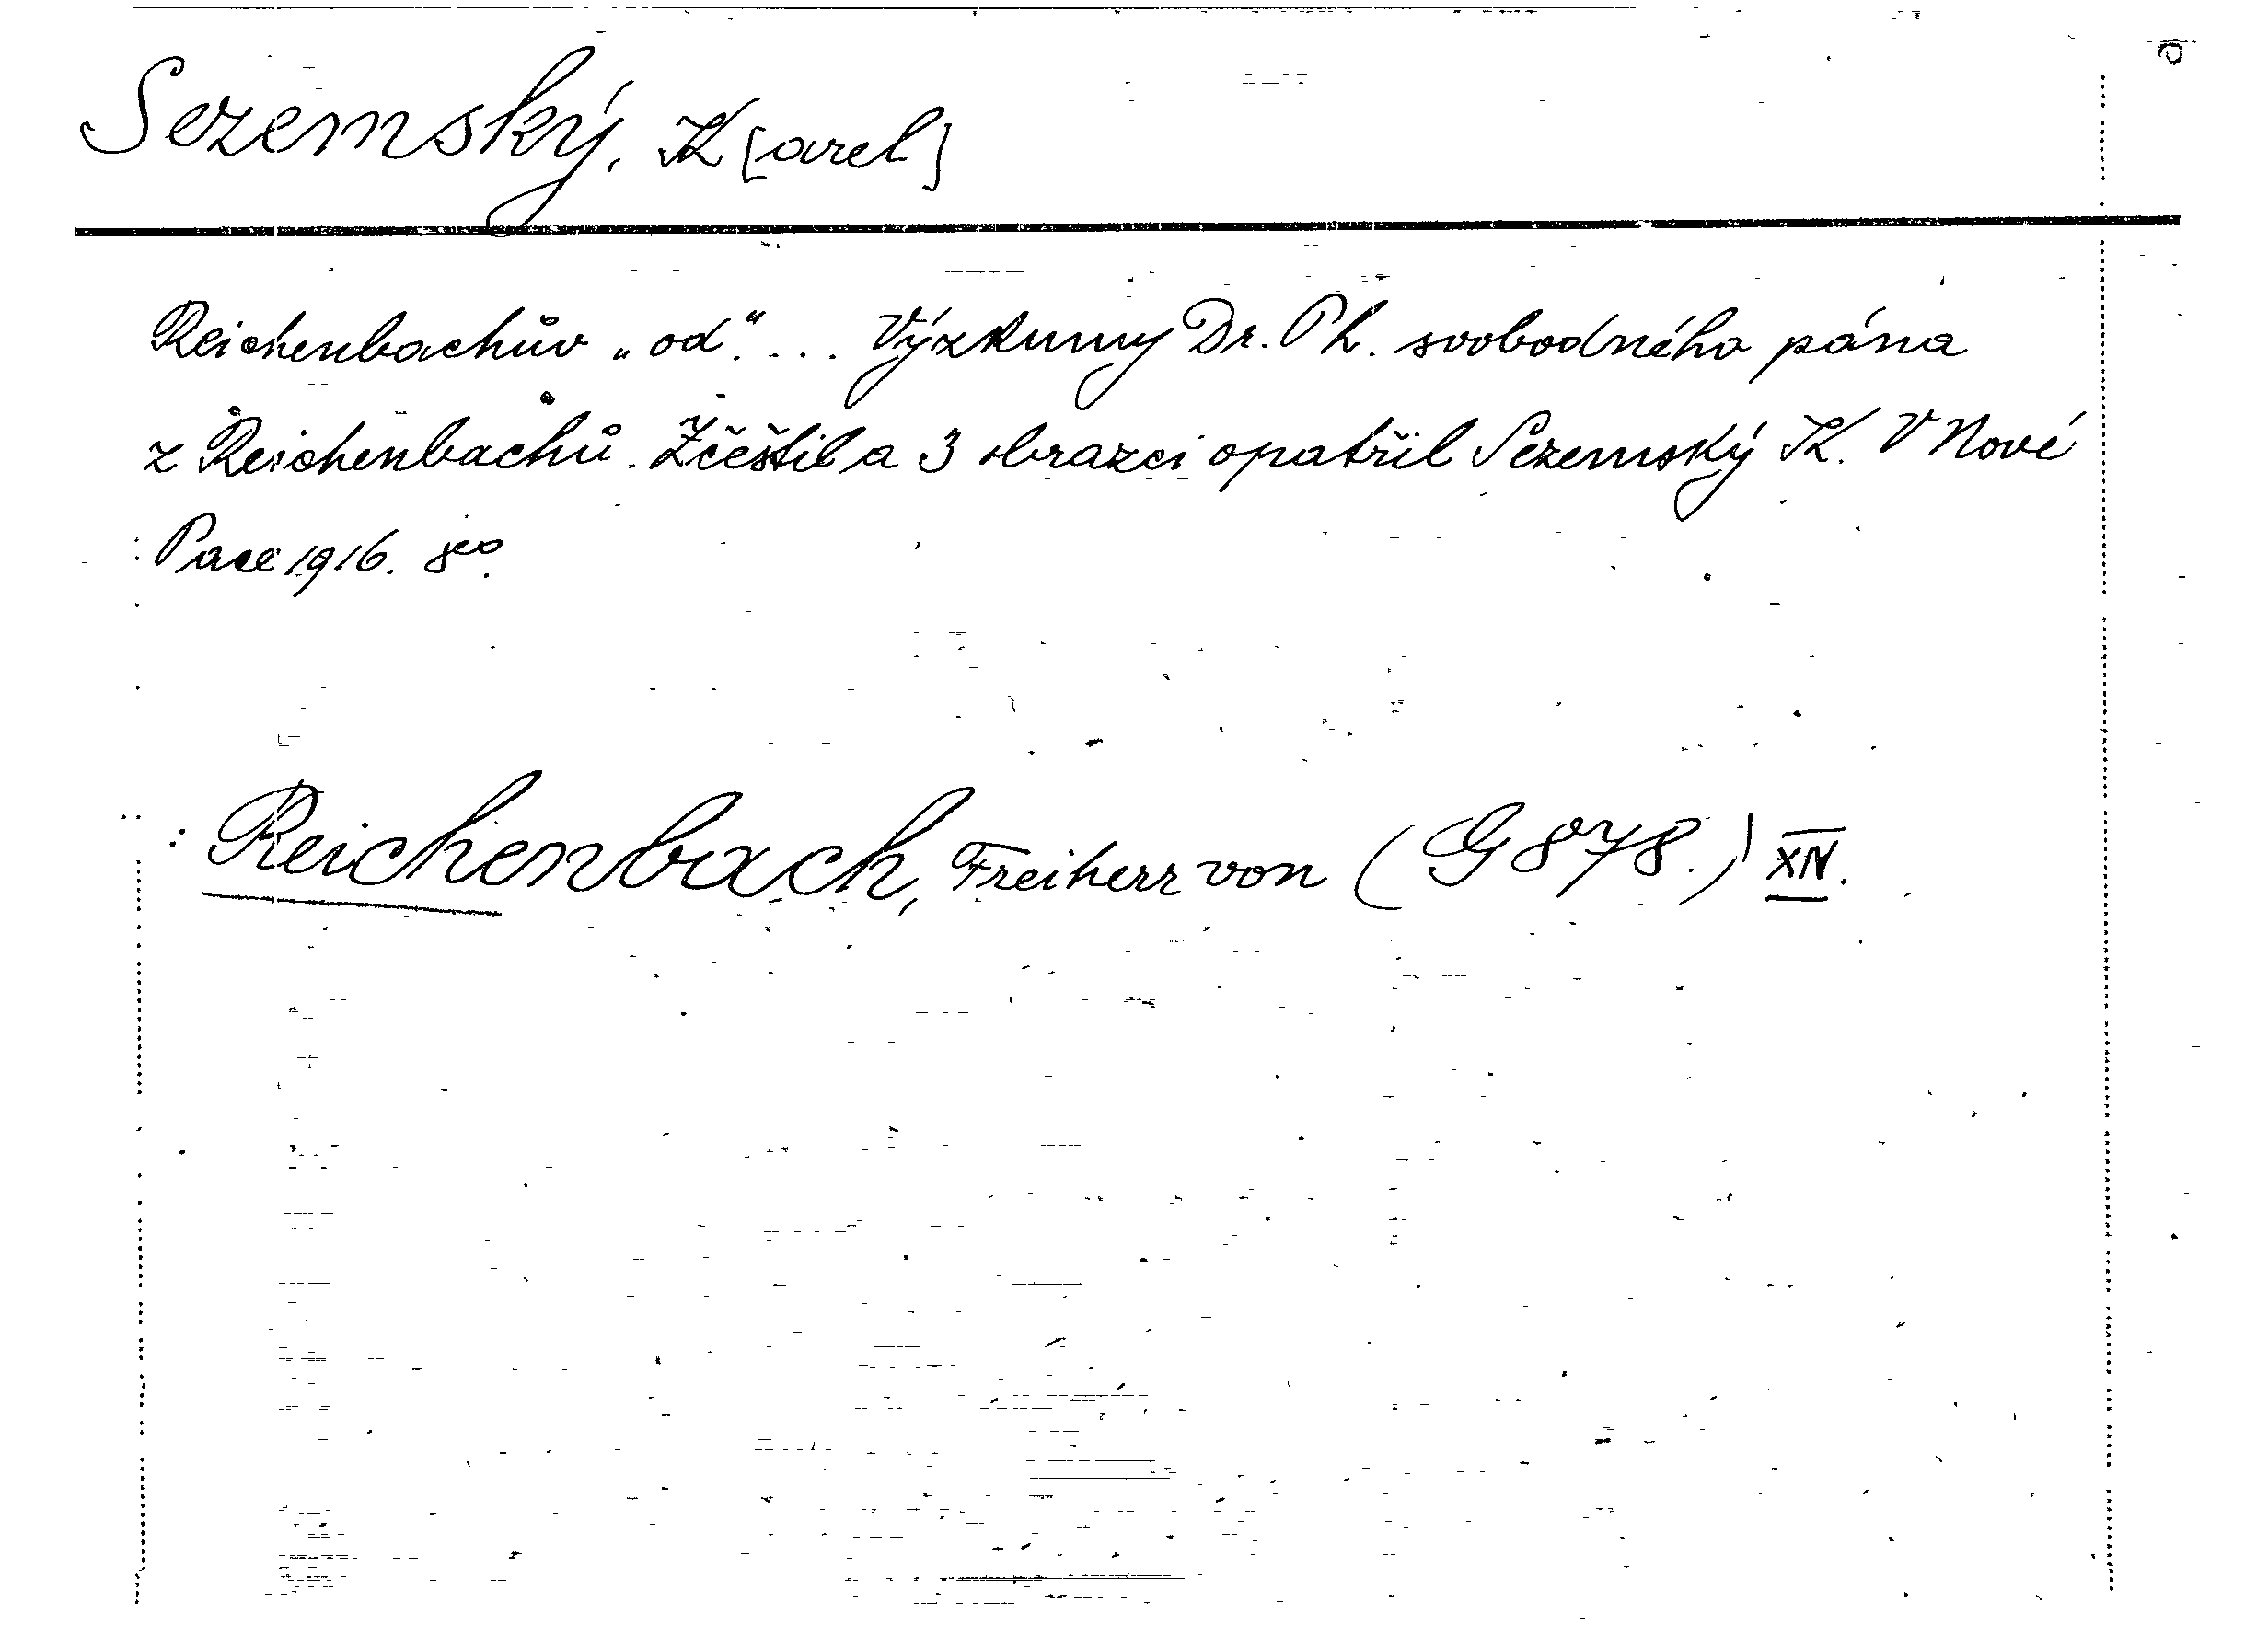 Sezemský, K[arel]
Reichenbachův „od“. ... Výzkumy Dr. Ph. svobodného pána
z Reichenbachů. Zčeštil a 3 obrazci opatřil Sezemský K. V Nové
Pace 1916. 8°.
: Reichenbach, Freiherr von (G 878.) XIV.